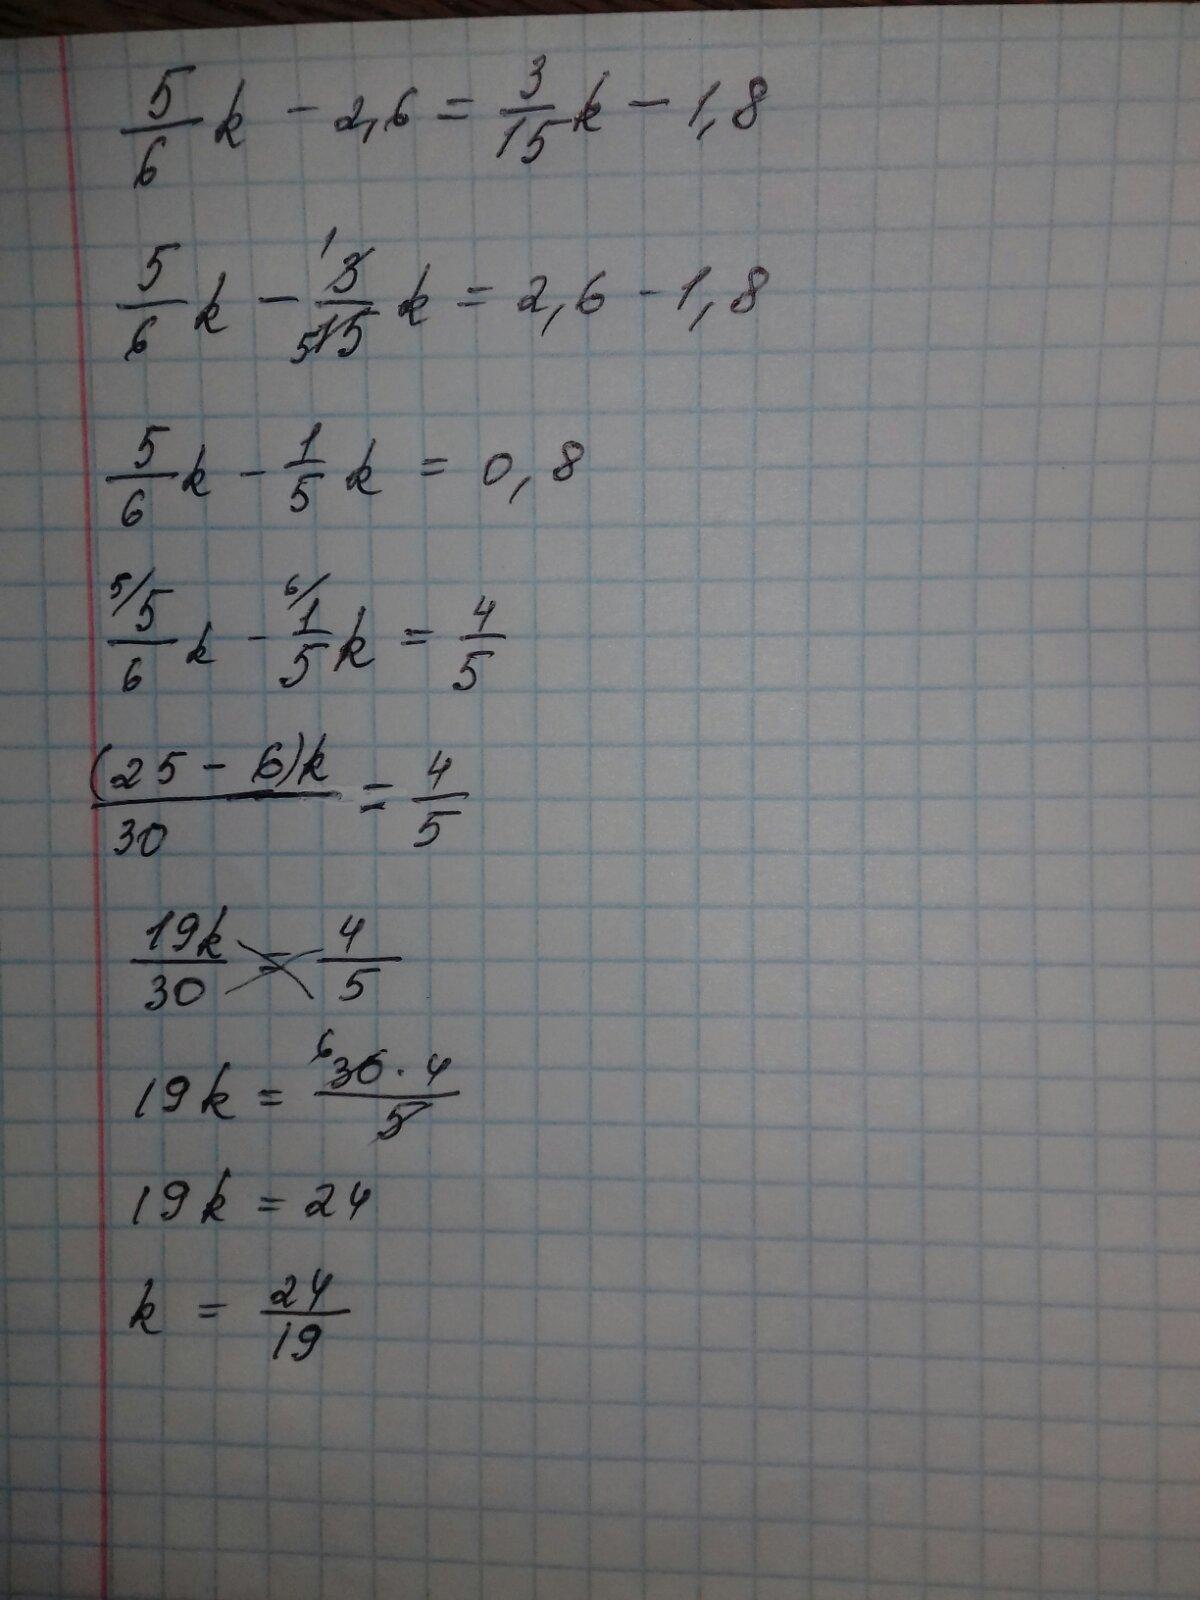 5/6 k - 2,6 = 3/15 k - 1,8
5/6 k - 3/15 k = 2,6 - 1,8
5/6 k - 1/5 k = 0,8
5/6 k - 1/5 k = 4/5
(25 - 6)k/30 = 4/5
19k/30 = 4/5
19k = 30·4/5
19k = 24
k = 24/19